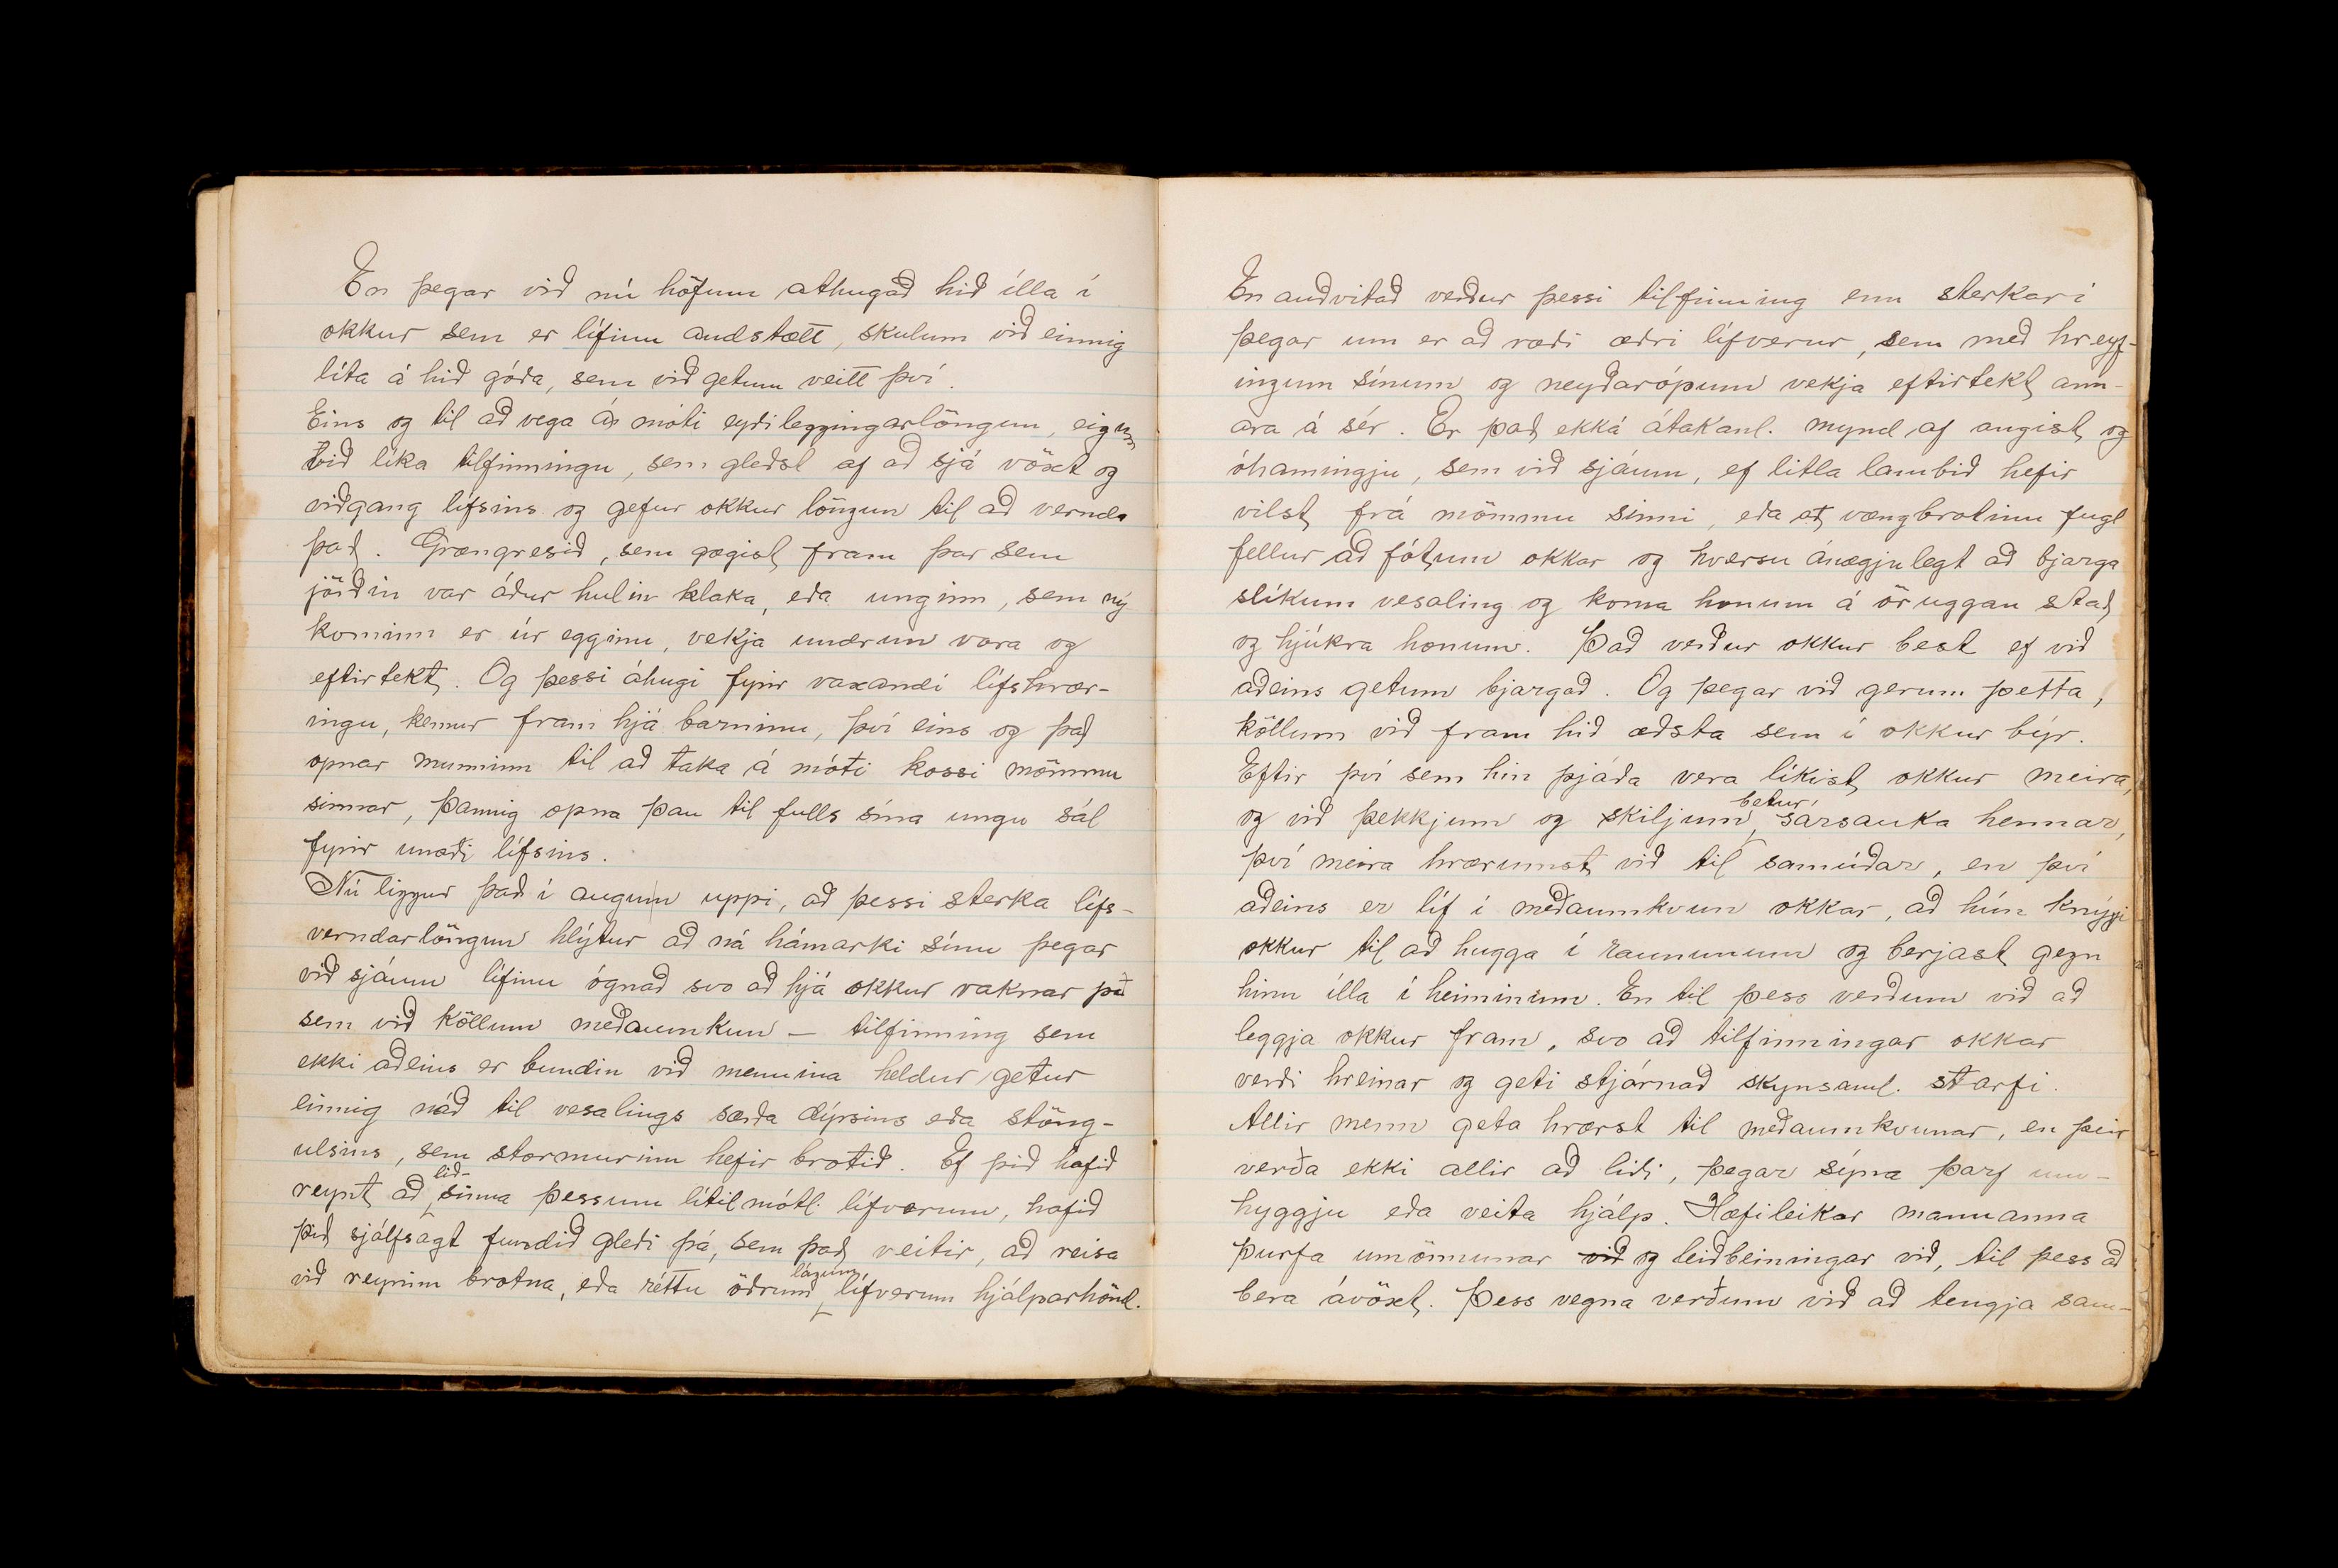 En þegar við nú höfum athugað hið ílla í
okkur sem er lífinu andstætt, skulum við einnig
líta á hið góða, sem við getum veitt því.
Eins og til að vega á móti eyðileggingarlöngun, eigum
við líka tilfinningu, sem gleðst af að sjá vöxt og
viðgang lífsins og gefur okkur löngun til að vernda
það. Grængresið, sem gægist fram þar sem
jörðin var áður hulin klaka, eða unginn, sem ný
kominn er úr egginu, vekja undrun vora og
eftirtekt. Og þessi áhugi fyrir vaxandi lífshrær-
ingu, kemur fram hjá barninu, því eins og það
opnar munninn til að taka á móti kossi mömmu
sinnar, þannig opna þau til fulls sína ungu sál
fyrir unaði lífsins.
Nú liggur það í augum uppi, að þessi sterka lífs-
verndarlöngun hlýtur að ná hámarki sínu þegar
við sjáum lífinu ógnað svo að hjá okkur vaknar það
sem við köllum meðaumkun — tilfinning sem
ekki aðeins er bundin við mennina heldur getur
einnig náð til vesalings særða dýrsins eða stöng-
ulsins, sem stormurinn hefir brotið. Ef þið hafið
reynt að lið-sinna þessum lítilmótl. lífverum, hafið
þið sjálfsagt fundið gleði þá, sem það veitir, að reisa
við reyrinn brotna, eða réttu öðrum lágum lífverum hjálparhönd.
En auðvitað verður þessi tilfinning enn sterkari
þegar um er að ræði æðri lífverur, sem með hreyf-
ingum sínum og neyðarópum vekja eftirtekt ann-
ara á sér. Er það ekká átakanl. mynd af angist og
óhamingju, sem við sjáum, ef litla lambið hefir
vilst frá mömmu sinni, eða að vængbrotinn fugl
fellur að fótum okkar og hversu ánægjulegt að bjarga
slíkum vesaling og koma honum á öruggan stað
og hjúkra honum. Það verður okkur best ef við
aðeins getum bjargað. Og þegar við gerum þetta,
köllum við fram hið æðsta sem í okkur býr.
Eftir því sem hin þjáða vera líkist okkur meira,
og við þekkjum og skiljum betur, sársauka hennar,
því meira hrærumst við til samúðar, en því
aðeins er líf í meðaumkvun okkar, að hún knýji
okkur til að hugga í raununum og berjast gegn
hinu ílla í heiminum. En til þess verðum við að
leggja okkur fram, svo að tilfinningar okkar
verði hreinar og geti stjórnað skynsaml. starfi.
Allir menn geta hrærst til meðaumkvunar, en þeir
verða ekki allir að liði, þegar sýna þarf um-
hyggju eða veita hjálp. Hæfileikar mannanna
þurfa umönnunar við og leiðbeiningar við, til þess að
bera ávöxt. Þess vegna verðum við að tengja sam-